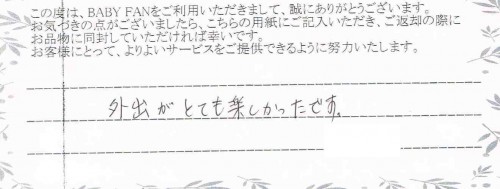 この度は、BABY FANをご利用いただきまして、誠にありがとうございます。
お気づきの点がございましたら、こちらの用紙にご記入いただき、ご返却の際に
お品物に同封していただければ幸いです。
お客様にとって、よりよいサービスをご提供できるように努力いたします。
外出がとても楽しかったです。